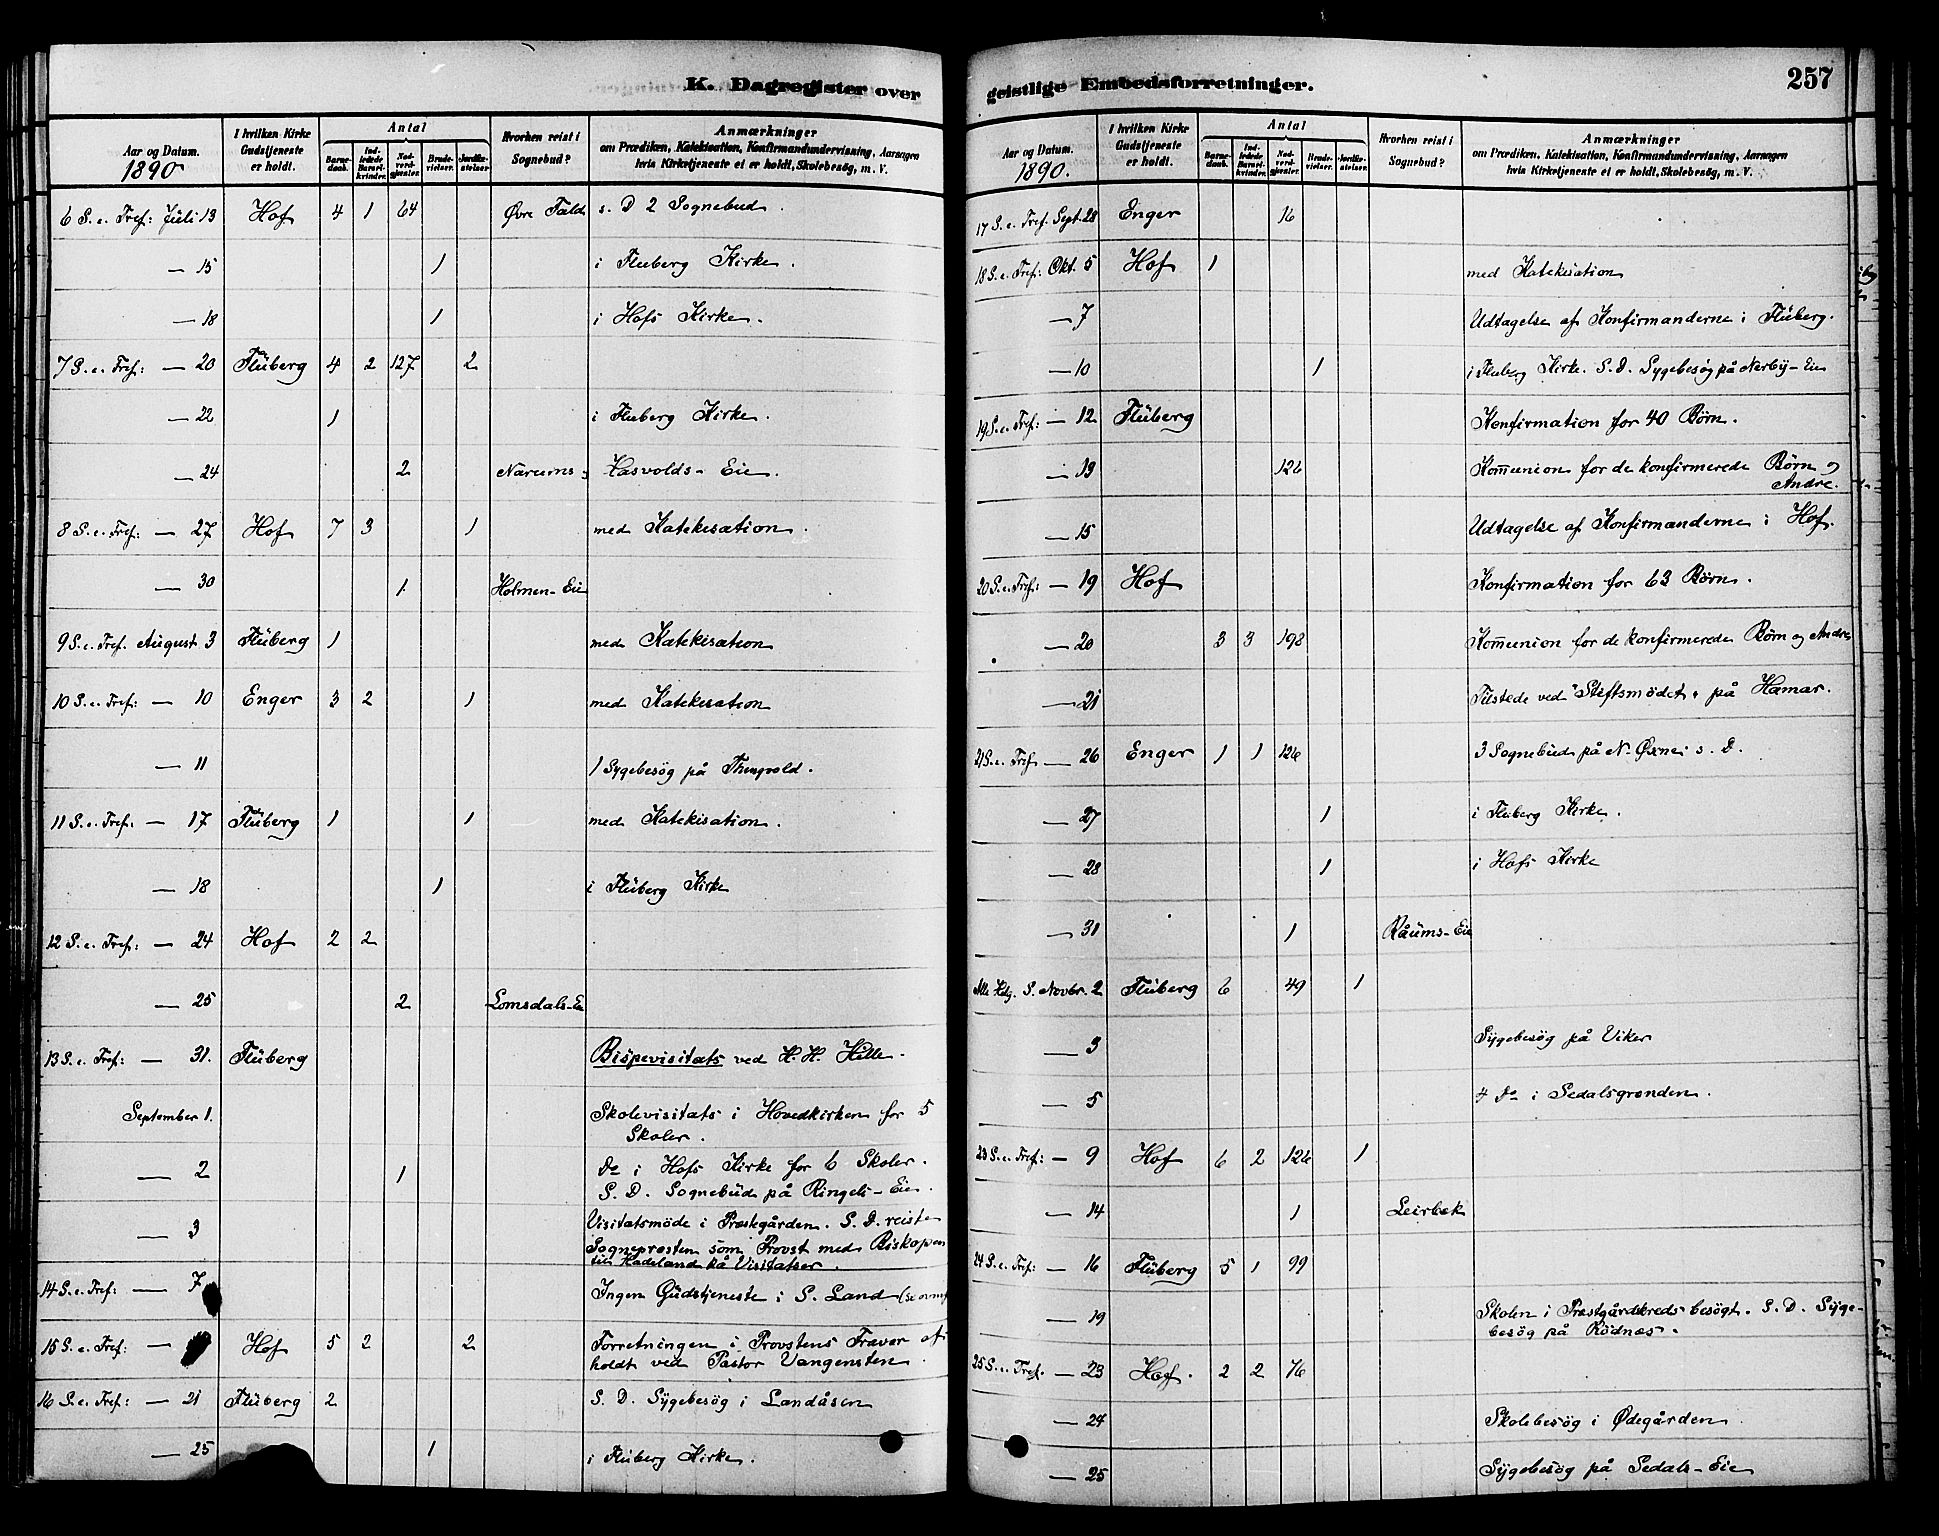 K. Dagregister over
Aar og Datum.
1890
I hvilken Kirke Gudstjeneste er holdt.
Antal
Barnedaab.
Indledede Barselkvinder.
Nadverdgjæster.
Brudevielser.
Jordfæstelser.
Hvorhen reist i Sognebud?
Anmærkninger
om Prædiken, Katekisation, Konfirmandundervisning, Aarsagen
hvis Kirketjeneste ei er holdt, Skolebesøg, m. V.
6 S. e. Tref: Juli 13 Hof 4 1 64 Øvre s. D 2 Sognebud.
— 15 1 i Fluberg Kirke.
— 18 1 i Hofs Kirke.
7 S. e. Tref: — 20 Fluberg 4 2 127 2
— 22 1 i Fluberg Kirke.
— 24 2 Narums- Hasvolds-Eie.
8 S. e. Tref: — 27 Hof 7 3 1 med Katekisation.
— 30 1. Holmen-Eie
9 S. e. Tref. August 3 Fluberg 1 med Katekisation
10 S. e. Tref: — 10 Enger 3 2 1 med Katekisation
— 11 1 Sygebesög på
11 S. e. Tref: — 17 Fluberg 1 1 med Katekisation.
— 18 1 i Fluberg Kirke
12 S. e. Tref: — 24 Hof 2 2
— 25 2 Lomsdals-Eie
13 S. e. Tref: — 31. Fluberg Bispevisitats ved H. H. Hille.
September 1. Skolevisitats i Hovedkirken for 5
Skoler.
— 2 1 Do i Hofs Kirke for 6 Skoler.
S. D. Sognebud på Ringels-Eie.
— 3 Visitatsmöde i Præstegården. S. D. reiste
Sognepræsten som Provst med Biskopen
til Hadeland på Visitatser.
14 S. e. Tref: — 7 Ingen Gudstjeneste i S. Land
15 S. e. Tref: — Hof 5 2 2 Forretningen i Provstens Fravær af-
holdt ved Pastor Vangensten.
16 S. e. Tref: — 21 Fluberg 2 S. D. Sygebesög i Landåsen
— 25 1 i Fluberg Kirke.
geistlige Embedsforretninger.
257
Aar og Datum.
1890.
I hvilken Kirke Gudstjeneste er holdt.
Antal
Barnedaab.
Indledede Barselkvinder.
Nadverdgjæster.
Brudevielser.
Jordfæstelser.
Hvorhen reist i Sognebud?
Anmærkninger
om Prædiken, Katekisation, Konfirmandundervisning, Aarsagen
hvis Kirketjeneste ei er holdt, Skolebesøg, m. V.
17 S. e. Tref. Sept. 28 Enger 16
18 S. e. Tref: Okt. 5 Hof 1 med Katekisation
— 7 Udtagelse af Konfirmanderne i Fluberg.
— 10 1 i Fluberg Kirke. S. D. Sygebesög på Nerby-Eie
19 S. e. Tref: — 12 Fluberg Konfirmation for 40 Børn.
— 13 126 Kommunion for de konfirmerede Børn og
Andre.
— 15 Udtagelse af Konfirmanderne i Hof.
20 S. e. Tref: — 19 Hof Konfirmation for 63 Børn.
— 20 3 3 198 Kommunion for de konfirmerede Børn og Andre
— 21 Tilstede ved "Stiftsmödet" på Hamar.
21 S. e. Tref — 26 Enger 1 1 126 3 Sognebud på N. Øxne s. D.
— 27 1 i Fluberg Kirke.
— 28 1 i Hofs Kirke
— 31 1 Råums-Eie
Alle Helg. S. Novbr. 2 Fluberg 6 49 1
— 3 Sygebesøg på Viker
— 5 4 Do i Sedalsgrenden.
23 S. e. Tref: — 9 Hof 6 2 126 1
— 14 1 Leirbæk
24 S. e. Tref: — 16 Fluberg 5 1 99
— 19 Skolen i Præstgårdkreds besögt. S. D. Syge-
besög på Rödnæs.
25 S. e. Tref. — 23 Hof. 2 2 76
— 24 Skolebesög i Ødegården.
— 25 Sygebesög på Sedals-Eie